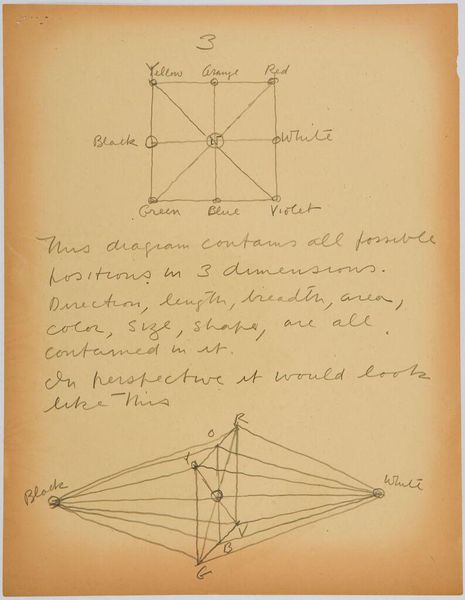 3
Yellow Orange Red
Black N White
Green Blue Violet
This diagram contains all possible
positions in 3 dimensions.
Direction, length, breadth, area,
color, size, shape, are all
contained in it.
In perspective it would look
like this
R
O
Y
Black White
V
B
G